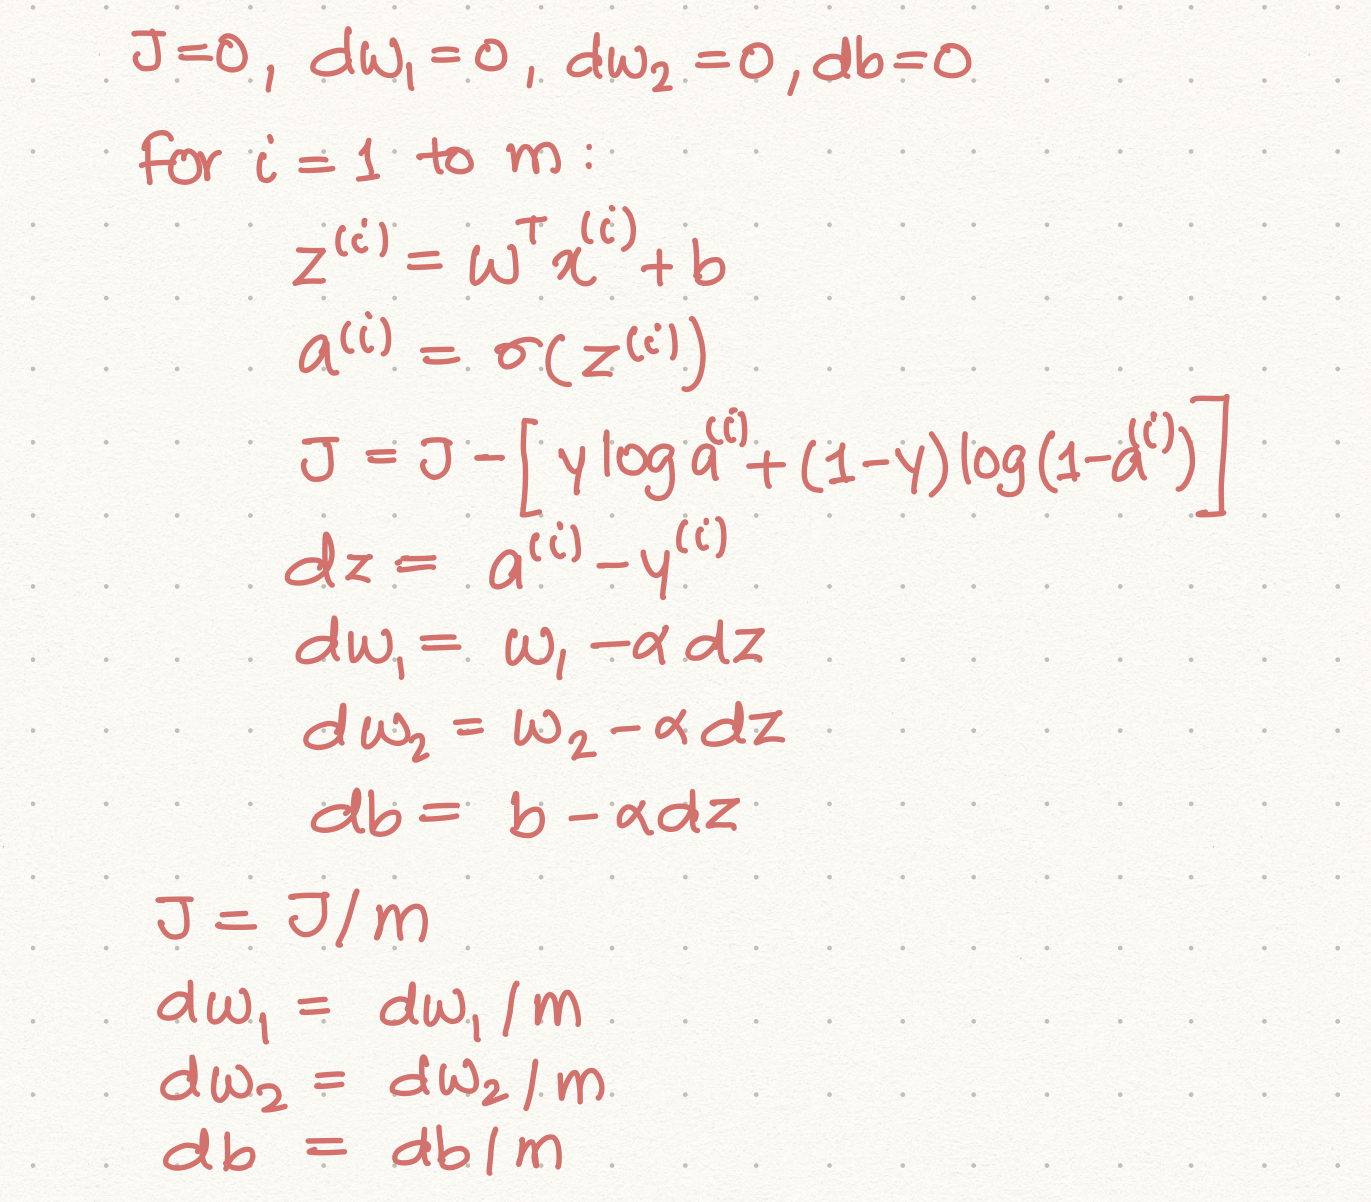 J=0, dw₁=0, dw₂=0, db=0
for i=1 to m:
z⁽ⁱ⁾ = wᵀx⁽ⁱ⁾+b
a⁽ⁱ⁾ = σ(z⁽ⁱ⁾)
J = J - [y log a⁽ⁱ⁾ + (1-y) log(1-a⁽ⁱ⁾)]
dz = a⁽ⁱ⁾ - y⁽ⁱ⁾
dw₁ = w₁ - α dz
dw₂ = w₂ - α dz
db = b - α dz
J = J/m
dw₁ = dw₁/m
dw₂ = dw₂/m
db = db/m